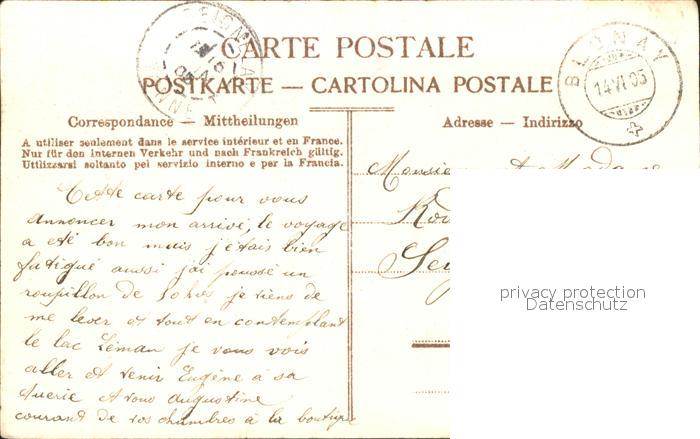 CARTE POSTALE
POSTKARTE — CARTOLINA POSTALE
BLONAY
14 VI 05
Correspondance — Mittheilungen
Adresse — Indirizzo
A utiliser seulement dans le service intérieur et en France.
Nur für den internen Verkehr und nach Frankreich gültig.
Utilizzarsi soltanto pel servizio interno e per la Francia.
Cette carte pour vous
annoncer mon arrivé, le voyage
a eté bon mais j'étais bien
fatigué aussi j'ai poussé un
roupillon de 10 hres je viens de
me lever et tout en contemplant
le lac Léman je vous vois
aller et venir Eugène à sa
tuerie et vous augustine
courant de vos chambres à la boutique
Monsieur et Madame
privacy protection
Datenschutz